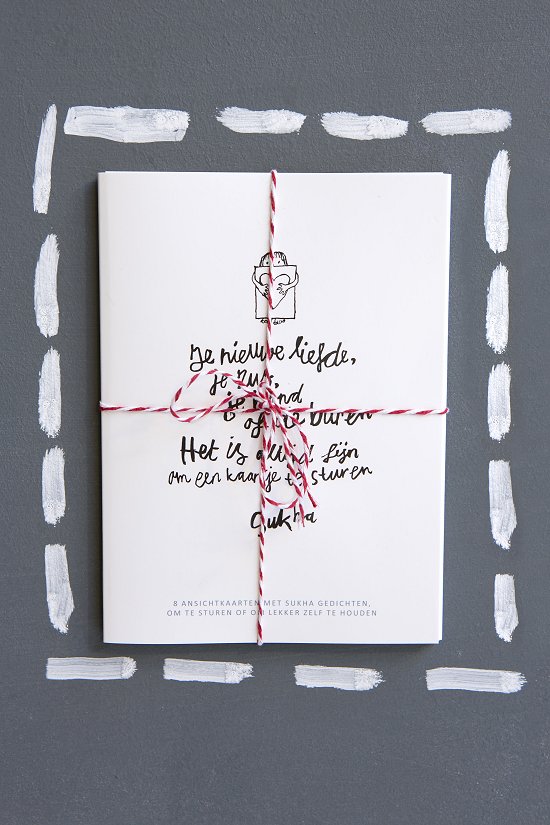 Je nieuwe liefde,
je zus,
je hond
of de buren
Het is altijd fijn
om een kaartje te sturen
Sukha
8 ANSICHTKAARTEN MET SUKHA GEDICHTEN,
OM TE STUREN OF OM LEKKER ZELF TE HOUDEN